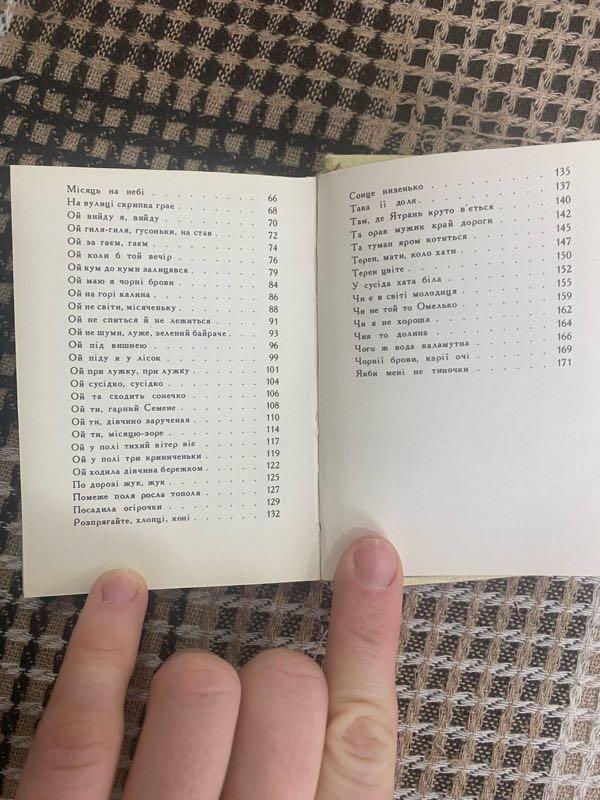 Місяць на небі . . . . . . . . . 66
На вулиці скрипка грає . . . . . . 68
Ой вийду я, вийду . . . . . . . . 70
Ой гиля-гиля, гусоньки, на став . . . 72
Ой за гаєм, гаєм . . . . . . . . 74
Ой коли б той вечір . . . . . . . 76
Ой кум до куми залицявся . . . . . 79
Ой маю я чорні брови . . . . . . . 84
Ой на горі калина . . . . . . . . 86
Ой не світи, місяченьку . . . . . . 88
Ой не спиться й не лежиться . . . . 91
Ой не шуми, луже, зелений байраче . . 93
Ой під вишнею . . . . . . . . . 96
Ой піду я у лісок . . . . . . . . 99
Ой при лужку, при лужку . . . . . . 101
Ой сусідко, сусідко . . . . . . . . 104
Ой та сходить сонечко . . . . . . . 106
Ой ти, гарний Семене . . . . . . . 108
Ой ти, дівчино зарученая . . . . . . 110
Ой ти, місяцю-зоре . . . . . . . . 114
Ой у полі тихий вітер віє . . . . . 117
Ой у полі три криниченьки . . . . . 119
Ой ходила дівчина бережком . . . . . 122
По дорозі жук, жук . . . . . . . . 125
Помеже поля росла тополя . . . . . 127
Посадила огірочки . . . . . . . . 129
Розпрягайте, хлопці, коні . . . . . . 132
Сонце низенько . . . . . . . . . 135
Така її доля . . . . . . . . . . 137
Там, де Ятрань круто в'ється . . . . 140
Та орав мужик край дороги . . . . . 142
Та туман яром котиться . . . . . . 145
Терен, мати, коло хати . . . . . . 147
Терен цвіте . . . . . . . . . . 150
У сусіда хата біла . . . . . . . . 152
Чи є в світі молодиця . . . . . . . 155
Чи не той то Омелько . . . . . . . 159
Чи я не хороша . . . . . . . . . 162
Чия то долина . . . . . . . . . 164
Чого ж вода каламутна . . . . . . . 166
Чорнії брови, карії очі . . . . . . 169
Якби мені не тиночки . . . . . . . 171